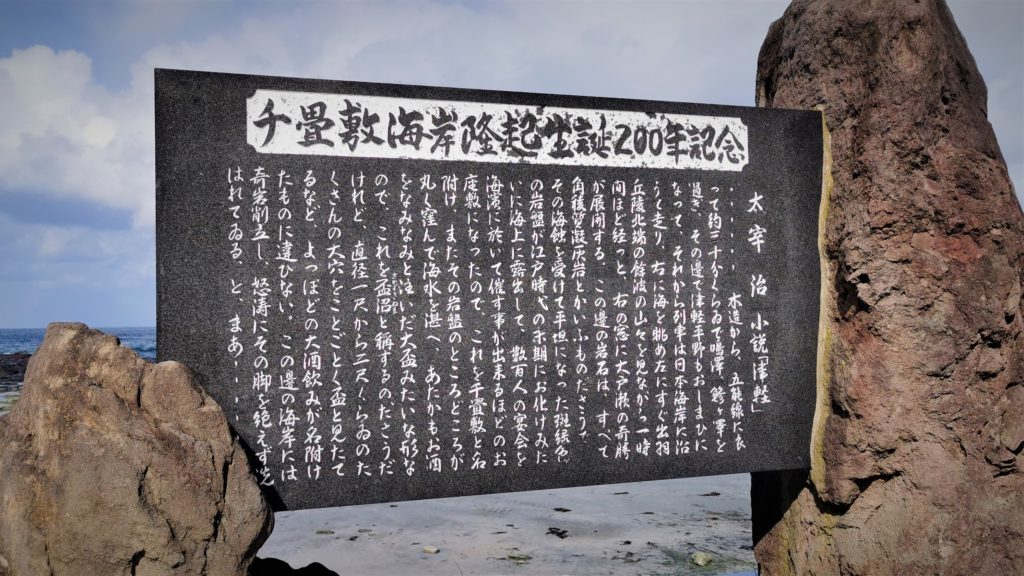 千畳敷海岸隆起生誕200年記念
太宰 治 小説「津軽」
・・・・・・木造から、五能線に依
って約三十分くらゐで鳴澤、鰺ヶ澤と
過ぎ、その邊で津軽平野もおしまひに
なって、それから列車は日本海岸に沿
うて走り、右に海を眺め左にすぐ出羽
丘陵北端の餘波の山々を見ながら一時
間ほど経っと、右の窓に大戸瀬の奇勝
が展開する。この邊の岩石は、すべて
角稜質凝灰岩とかいふものださうで、
その海蝕を受けて平坦になった斑緑色
の岩盤が江戸時代の末期にお化けみた
いに海上に露出して、数百人の宴会を
海濱に於いて催す事が出来るほどのお
座敷になったので、これを千畳敷と名
附け、またその岩盤のところどころが
丸く窪んで海水を湛へ、あたかもお酒
をなみなみと注いだ大盃みたいな形な
ので、これを盃沼と稱するのださうだ
けれど、直径一尺から二尺くらゐのた
くさんの大穴をことごとく盃と見たて
るなど、よっぽどの大酒飲みが名附け
たものに違ひない。この邊の海岸には
奇岩削立し、怒濤にその脚を絶えず洗
はれてゐる。と、まあ・・・・・